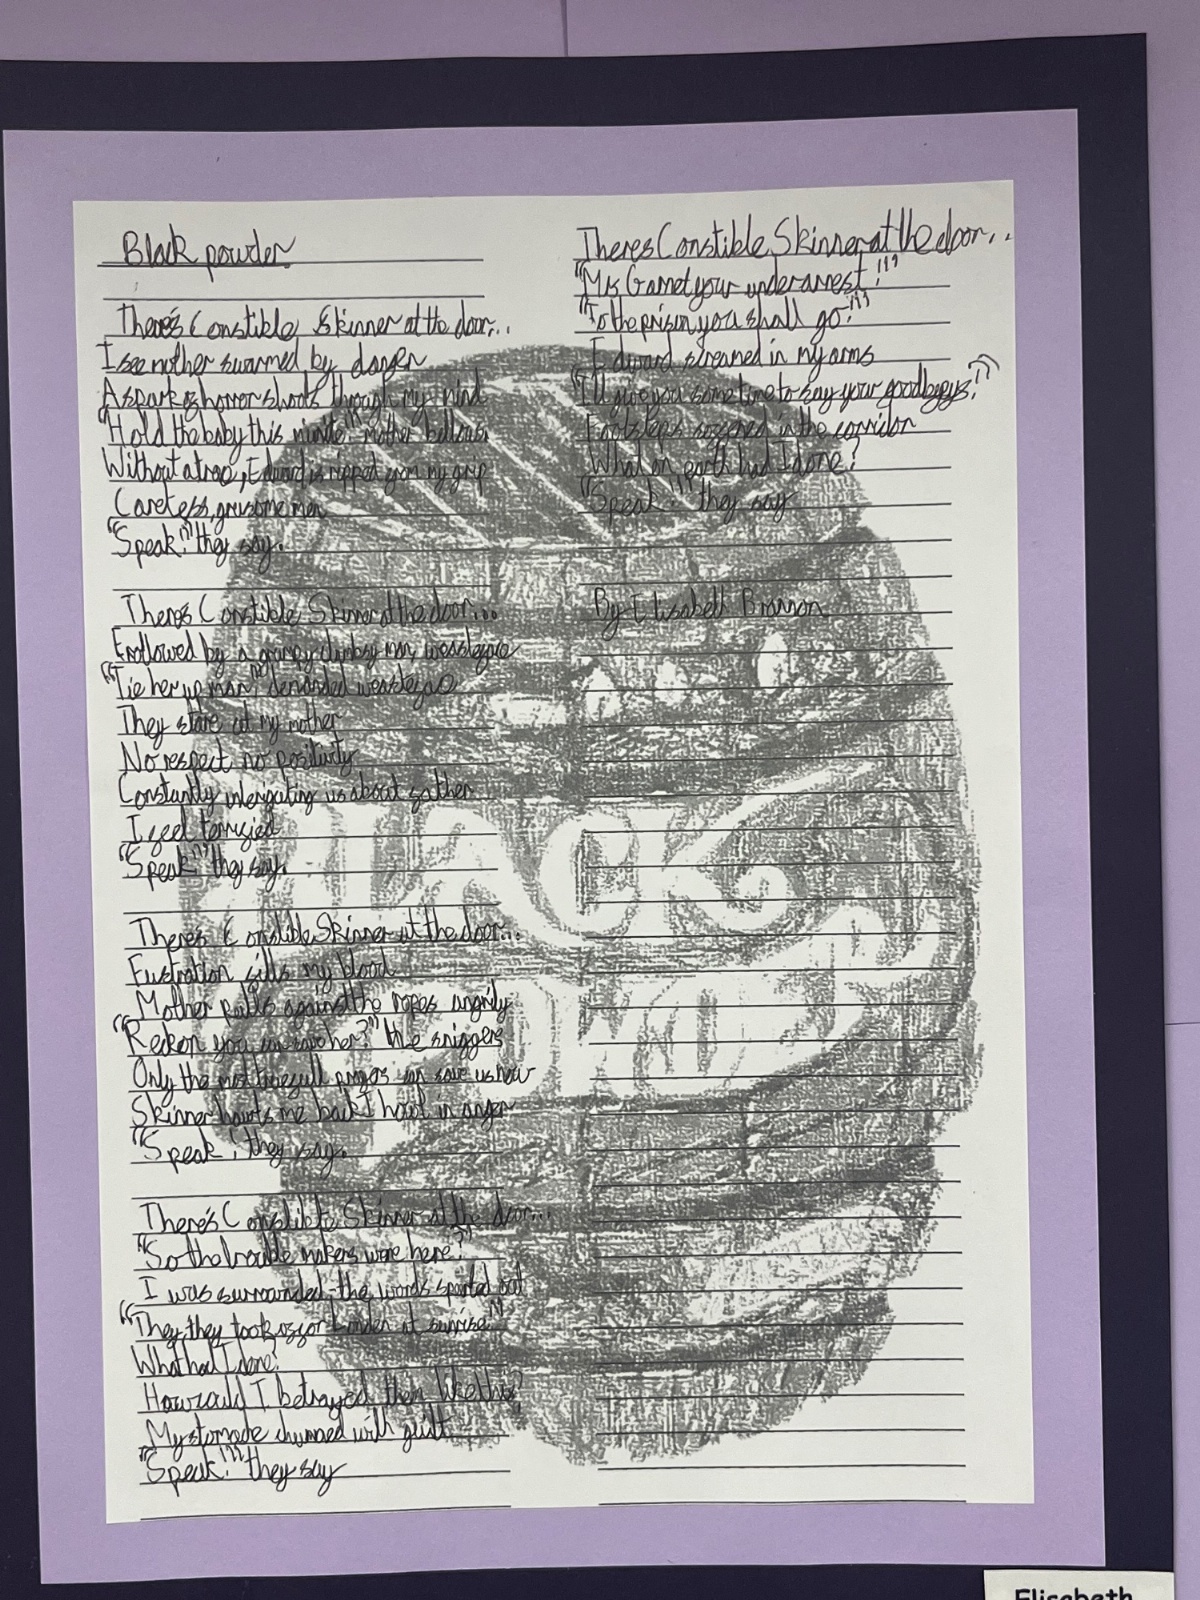 Black powder
There's Constible Skinner at the door...
I see mother swarmed by danger
A spark of horror shoots through my mind
"Hold the baby this minite" mother bellows
Without a trace, Edward is ripped from my grip
Careless, grusome men
"Speak!" they say.
There's Constible Skinner at the door...
Followed by a grumpy clumbsy man,
"Tie her up man," demanded
They stare at my mother
No respect no positivity
Constantly interigating us about father
I feel terrified
"Speak!" they say.
There's Constible Skinner at the door...
Fustration fills my blood
Mother pulls against the ropes angrily
"Reckon you can her?" He sniggers
Only the most can save us now
Skinner me back I howl in anger
"Speak!" they say.
There's Constible Skinner at the door...
"So the trouble makers were here?"
I was surrounded the words spurted out
"They, they took off for London at sunrise"
What had I done?
How could I betrayed them like this?
My stomache churned with guilt
"Speak!!" they say
Theres Constible Skinner at the door...
"Mrs Garnet your under arrest!!!"
"To the prison you shall go!!!"
Edward screamed in my arms
"I'll give you some time to say your goodbeyys!"
Footsteps in the corridor
What on earth had I done?
"Speak!!" they say
By Elisabeth Brannon
BLACK
POWDER
Elisabeth